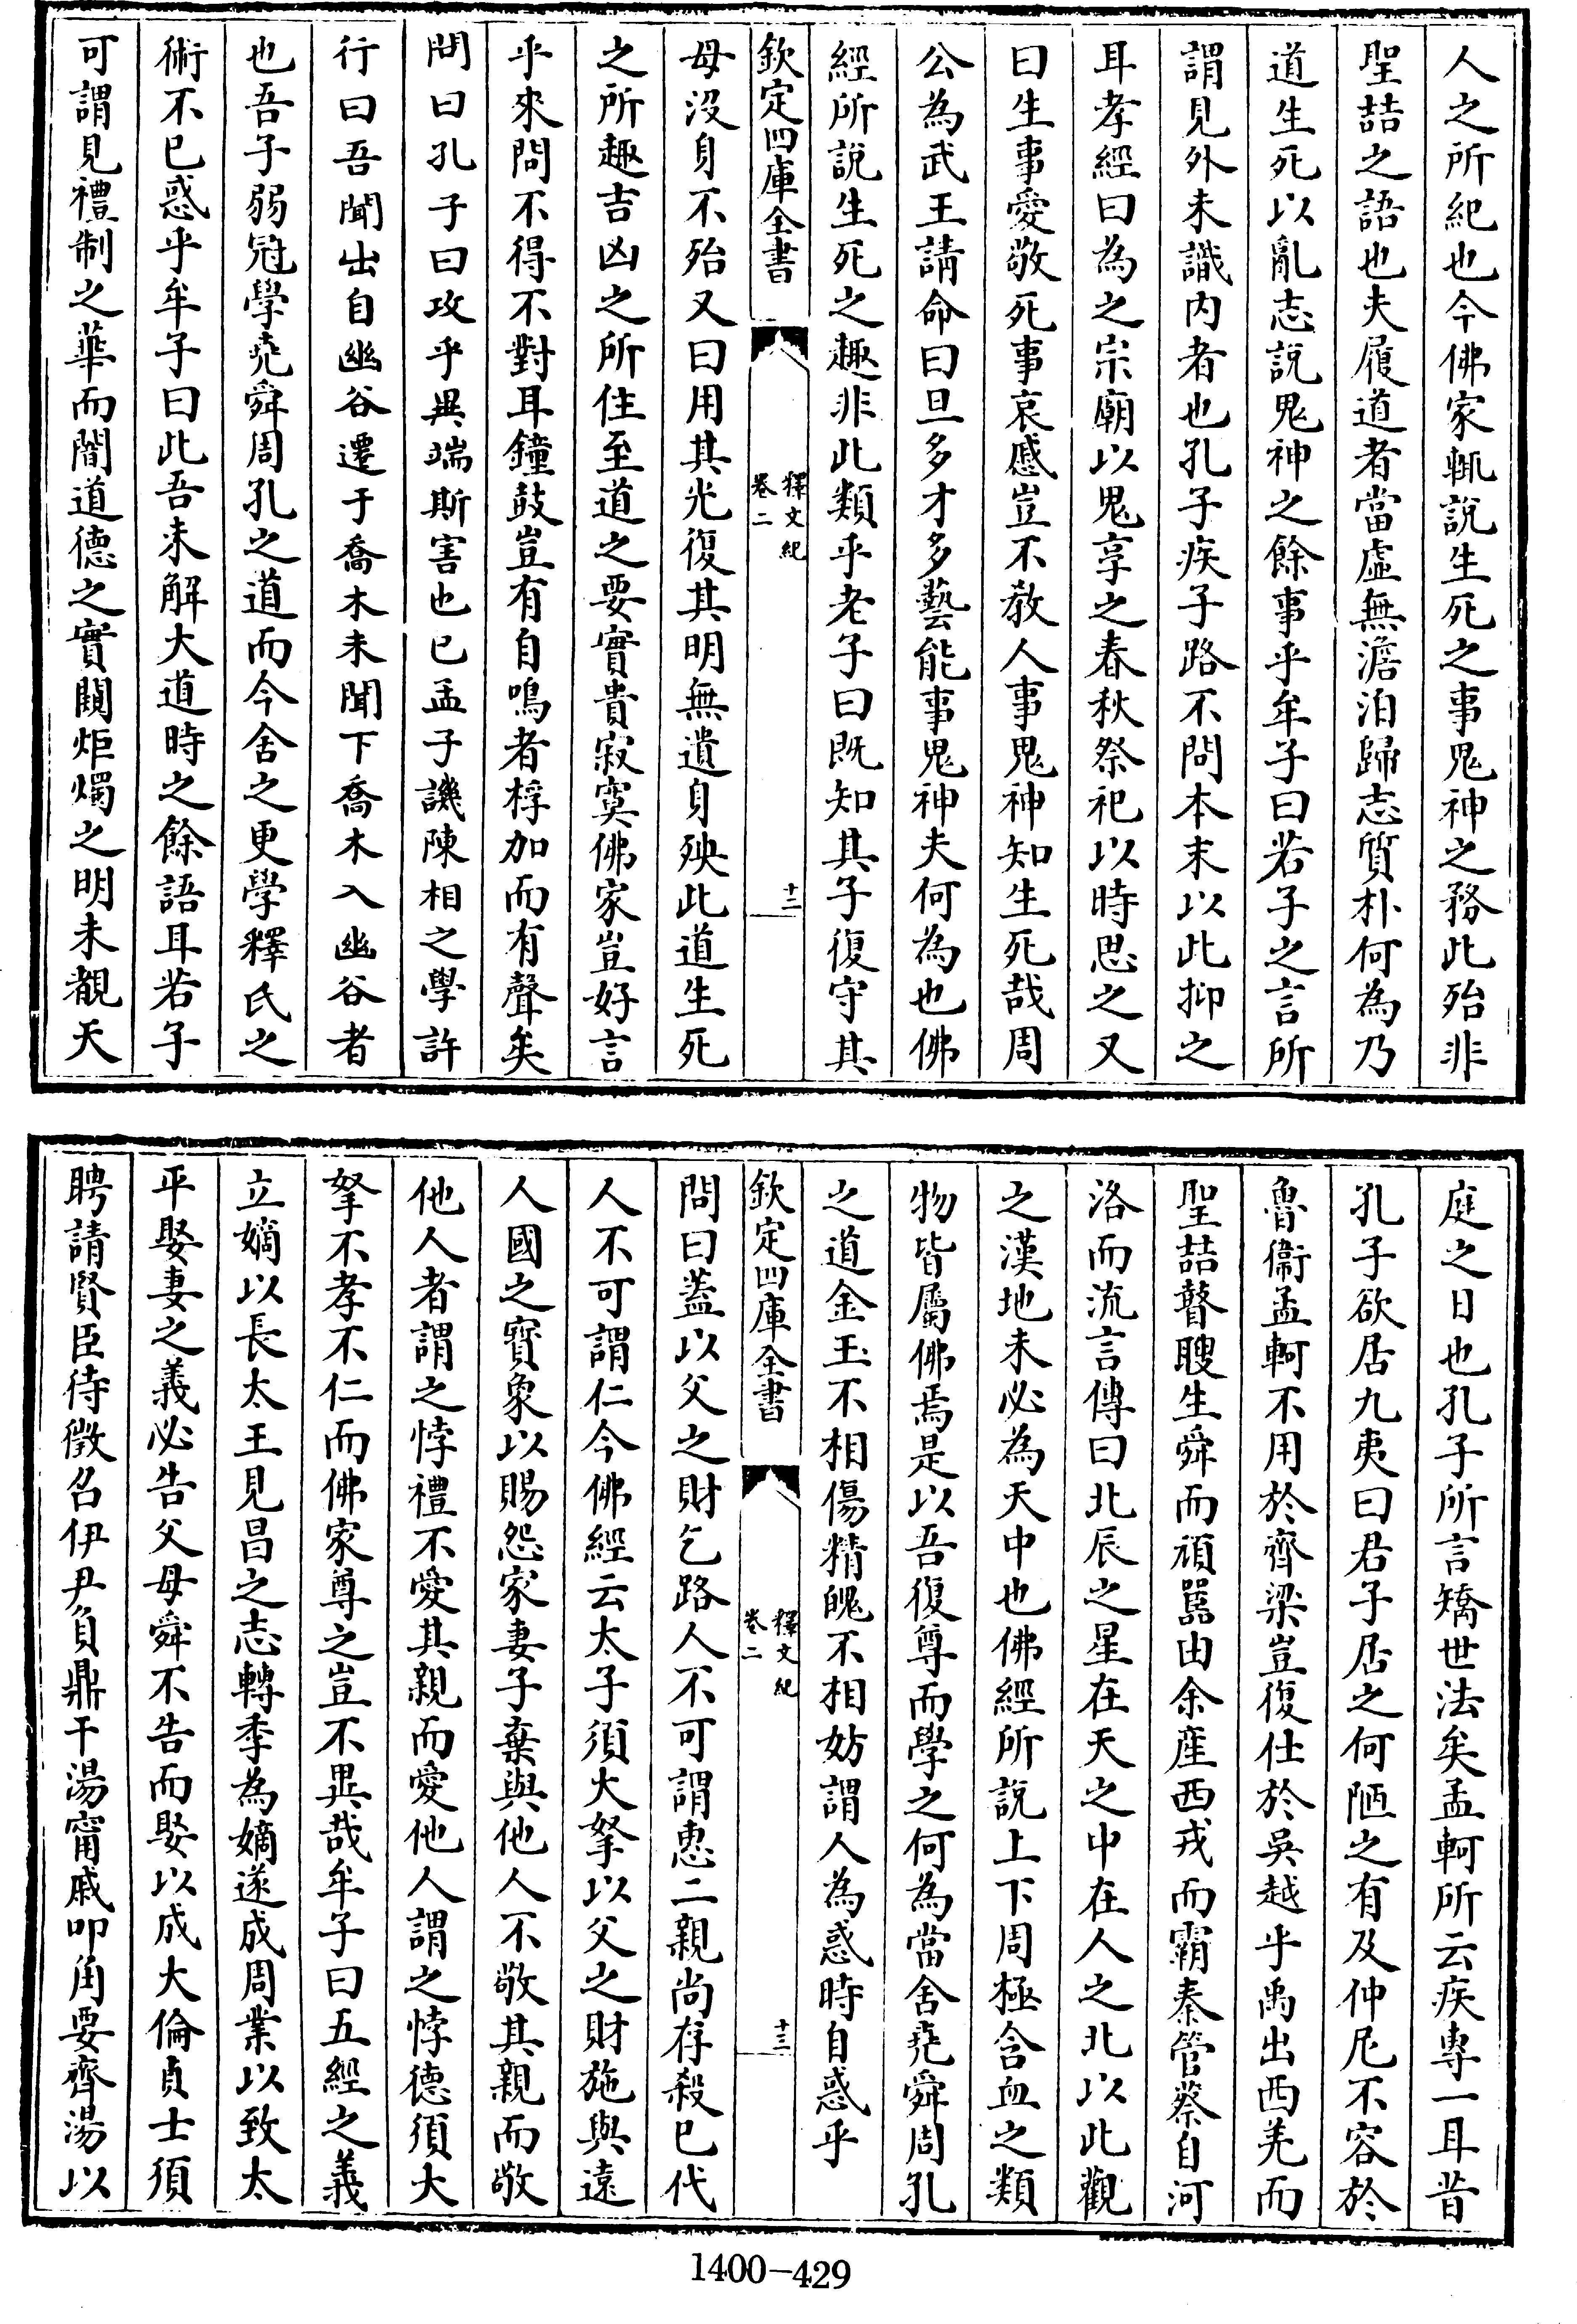 人之所紀也今佛家輒說生死之事鬼神之務此殆非
聖喆之語也夫履道者當虛無澹泊歸志質朴何為乃
道生死以亂志說鬼神之餘事乎牟子曰若子之言所
謂見外未識内者也孔子疾子路不問本末以此抑之
耳孝經曰為之宗廟以鬼享之春秋祭祀以時思之又
曰生事愛敬死事哀慼豈不教人事鬼神知生死哉周
公為武王請命曰旦多才多藝能事鬼神夫何為也佛
經所說生死之趣非此類乎老子曰既知其子復守其
欽定四庫全書
釋文紀
卷二
十二
母沒身不殆又曰用其光復其明無遺身殃此道生死
之所趣吉凶之所住至道之要實貴寂寞佛家豈好言
乎來問不得不對耳鐘鼓豈有自鳴者桴加而有聲矣
問曰孔子曰攻乎異端斯害也已孟子譏陳相之學許
行曰吾聞出自幽谷遷于喬木未聞下喬木入幽谷者
也吾子弱冠學堯舜周孔之道而今舍之更學釋氏之
術不已惑乎牟子曰此吾未解大道時之餘語耳若子
可謂見禮制之華而闇道德之實闚炬燭之明未覩天
庭之日也孔子所言矯世法矣孟軻所云疾專一耳昔
孔子欲居九夷曰君子居之何陋之有及仲尼不容於
魯衞孟軻不用於齊梁豈復仕於吳越乎禹出西羌而
聖喆瞽瞍生舜而頑嚚由余産西戎而霸秦管蔡自河
洛而流言傳曰北辰之星在天之中在人之北以此觀
之漢地未必為天中也佛經所說上下周極含血之類
物皆屬佛焉是以吾復尊而學之何為當舍堯舜周孔
之道金玉不相傷精魄不相妨謂人為惑時自惑乎
欽定四庫全書
釋文紀
卷二
十三
問曰蓋以父之財乞路人不可謂惠二親尚存殺已代
人不可謂仁今佛經云太子須大拏以父之財施與遠
人國之寶象以賜怨家妻子棄與他人不敬其親而敬
他人者謂之悖禮不愛其親而愛他人謂之悖德須大
拏不孝不仁而佛家尊之豈不異哉牟子曰五經之義
立嫡以長太王見昌之志轉季為嫡遂成周業以致太
平娶妻之義必告父母舜不告而娶以成大倫貞士須
聘請賢臣待徵召伊尹負鼎干湯甯戚叩角要齊湯以
1400-429